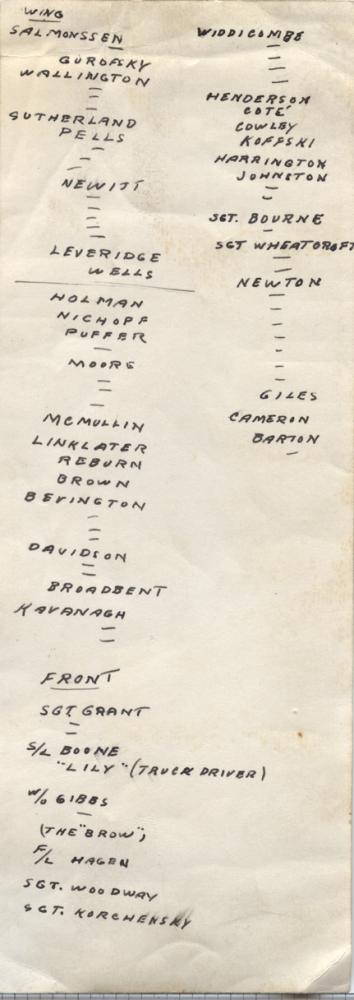 WING
SALMONSSEN
GUROFSKY
WALLINGTON
SUTHERLAND
PELLS
NEWITT
LEVERIDGE
WELLS
HOLMAN
NICHOFF
PUFFER
MOORE
MCMULLIN
LINKLATER
REBURN
BROWN
BEVINGTON
DAVIDSON
BROADBENT
KAVANAGH
FRONT
SGT GRANT
S/L BOONE
"LILY" (TRUCK DRIVER)
W/O GIBBS
(THE "BROW")
F/L HAGEN
SGT. WOODWAY
SGT. KORCHENSKY
WIDDICOMBE
HENDERSON
COTÉ
COWLEY
KOFFSKI
HARRINGTON
JOHNSTON
SGT. BOURNE
SGT WHEATCROFT
NEWTON
GILES
CAMERON
BARTON